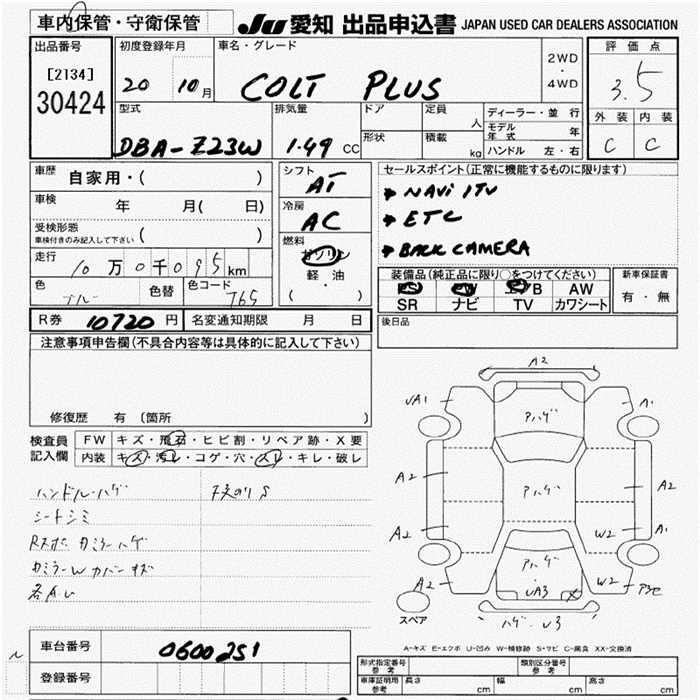 車内保管・守衛保管
JU 愛知 出品申込書 JAPAN USED CAR DEALERS ASSOCIATION
出品番号
[2134]
30424
初度登録年月
20 10月
車名・グレード
COLT PLUS
2WD
・
4WD
評価点
3.5
外装 内装
C C
型式
DBA-Z23W
排気量
1.49 CC
ドア
形状
定員
人
積載
kg
ディーラー・並行
モデル年式 年
ハンドル 左・右
車歴
自家用・( )
車検
年 月( 日)
受検形態
車検付きのみ記入して下さい ( )
走行
10万0千095km
色
ブルー
色替
色コード
T65
シフト
AT
冷房
AC
燃料
ガソリン
軽油
( ・ )
セールスポイント(正常に機能するものに限ります)
→ NAVI ITV
→ ETC
→ BACK CAMERA
装備品(純正品に限り○をつけてください)
PS PW エアB AW
SR ナビ TV カワシート
新車保証書
有・無
後日品
R券 10720円
名変通知期限 月 日
注意事項申告欄(不具合内容等は具体的に記入して下さい)
修復歴 有 (箇所 )
検査員
記入欄
FW キズ・飛石・ヒビ割・リペア跡・X要
内装 キズ・汚レ・コゲ・穴・スレ・キレ・破レ
ハンドルハゲ
シートシミ
Rスポカミラーハゲ
カミラーWカバーキズ
天のりS
A2
UA1
A1
アハゲ
A2
アハゲ
A2
A2
W2
A1
A2
アハゲ
・UA3
X
W2
ハゲ・U3
スペア
A-キズ E-エクボ U-凹み W-補修跡 S-サビ C-腐食 XX-交換済
車台番号
0600251
登録番号
形式指定番号
参考
類別区分番号
参考
車庫証明用
参考
長さ cm 幅 cm 高さ cm